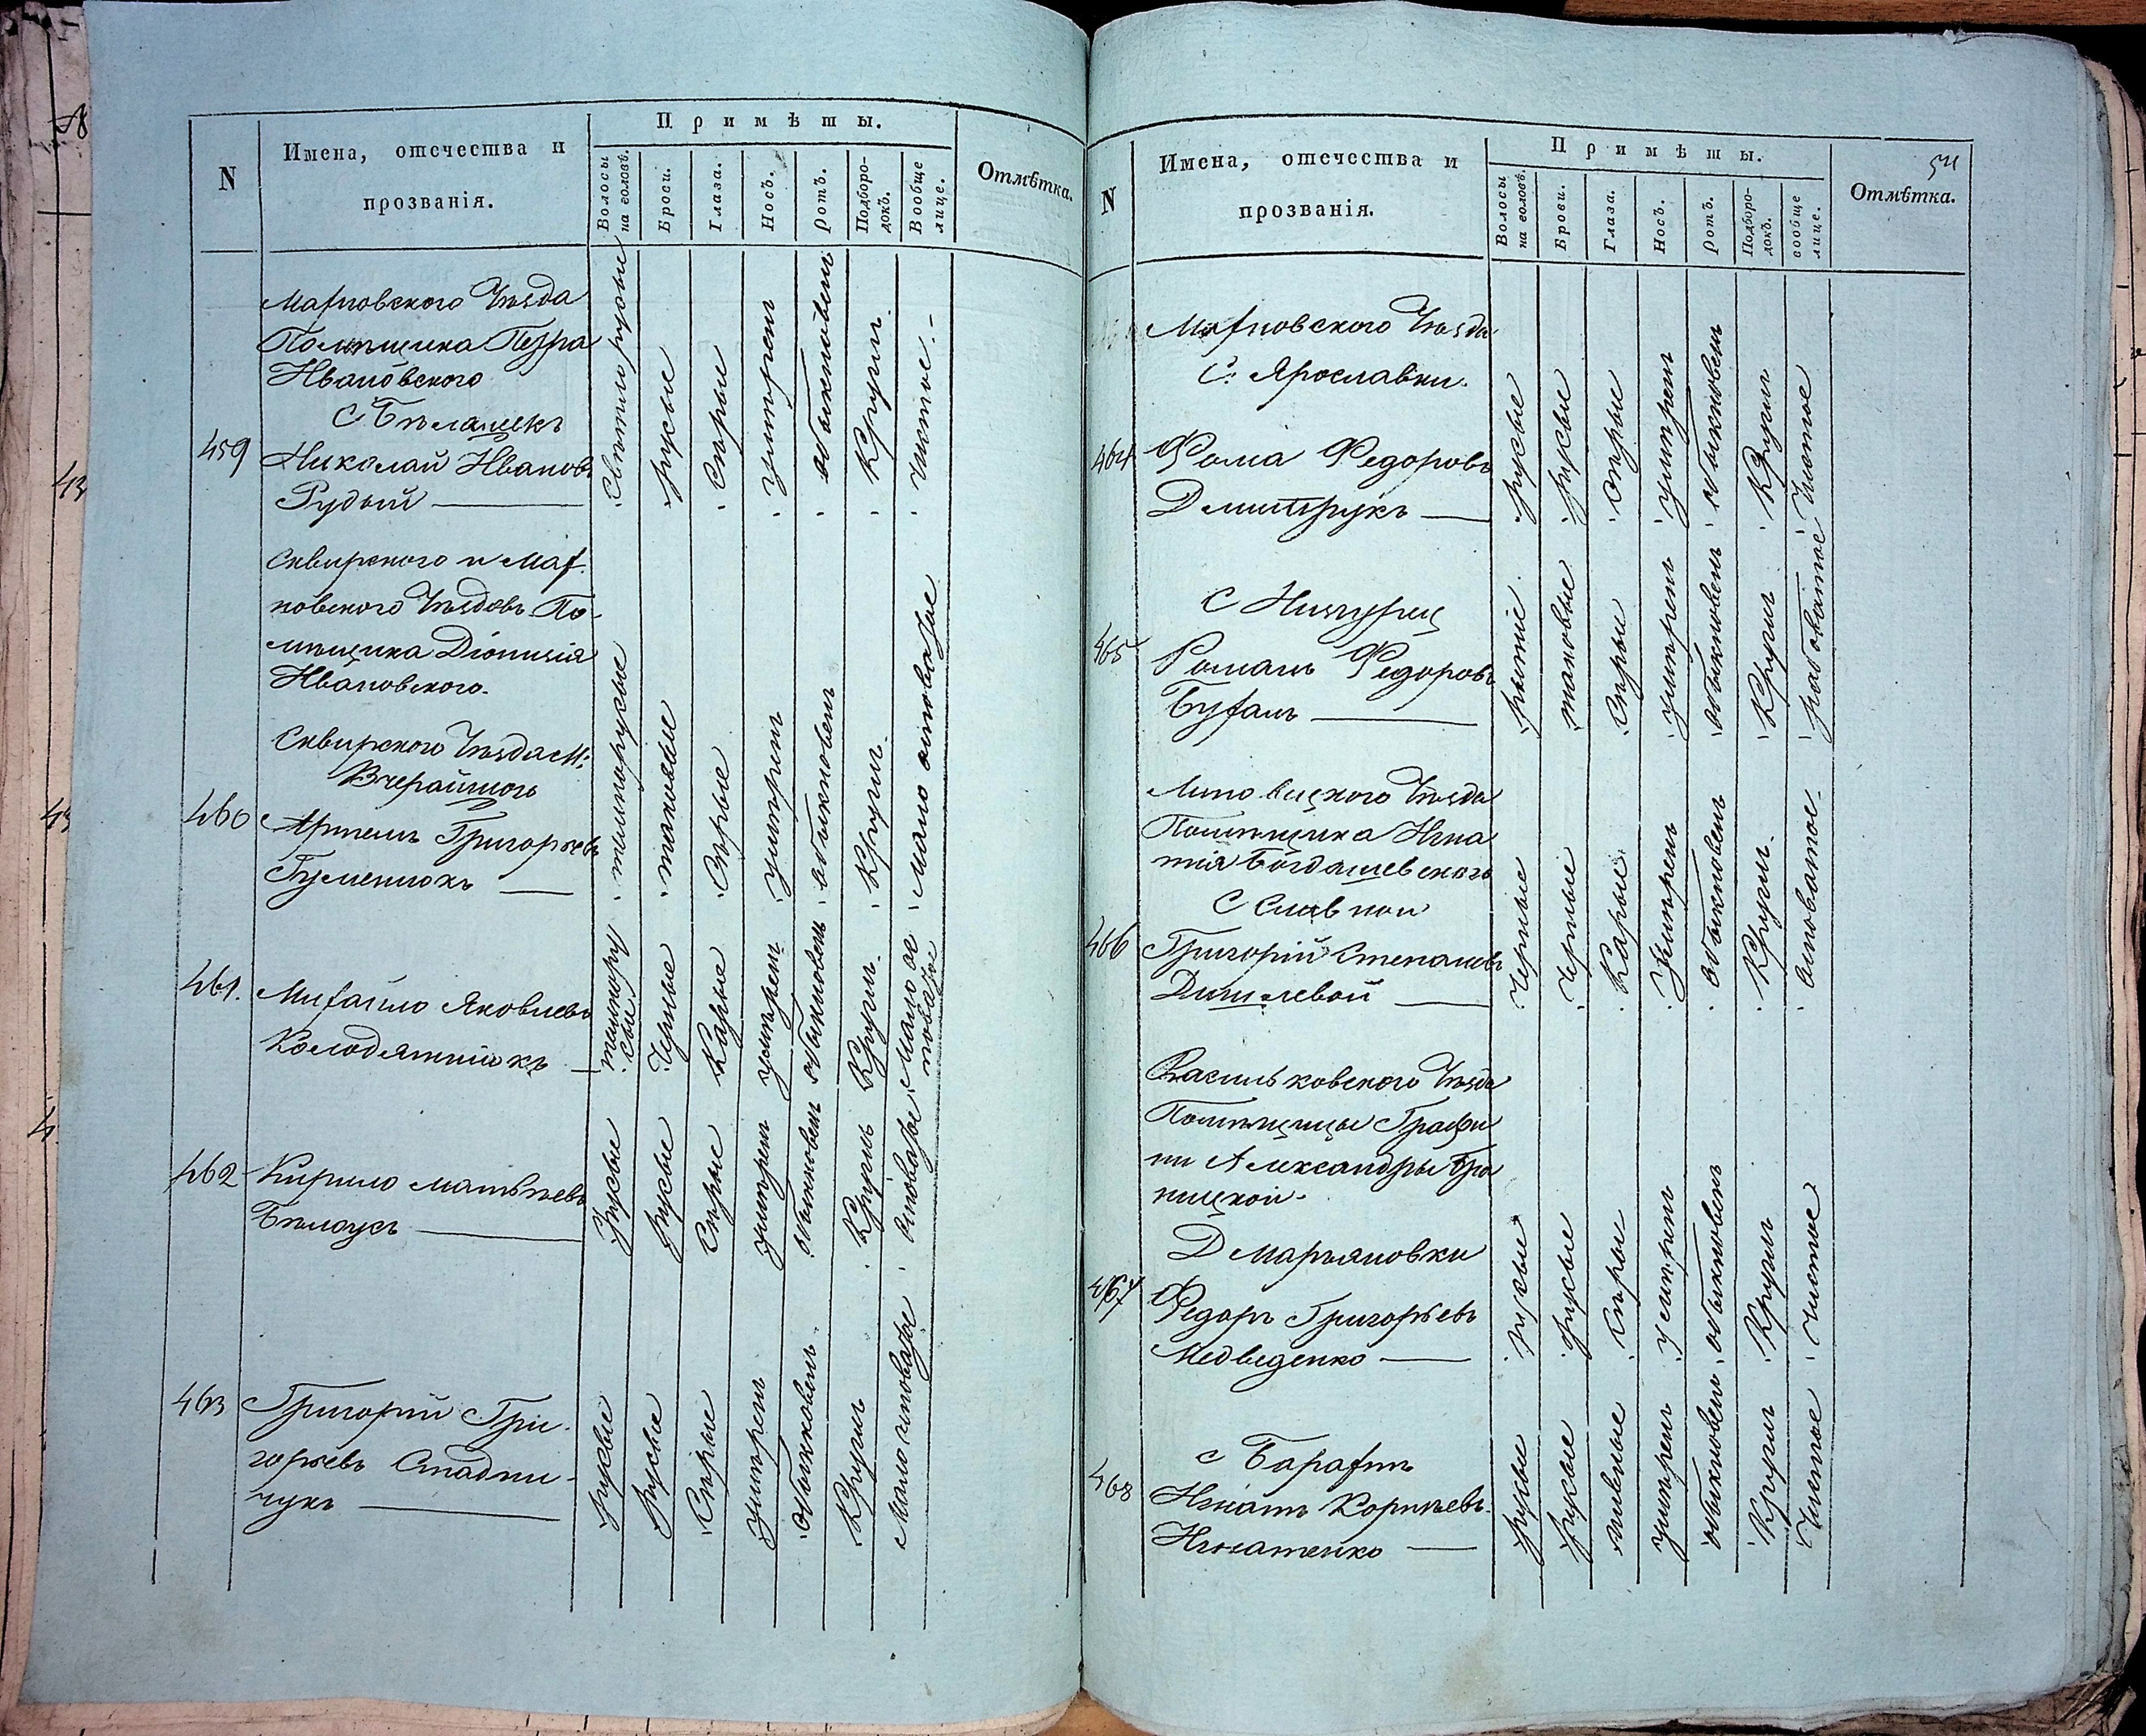 N
Имена, отечества и
прозванія.
Примѣты.
Волосы
на головѣ.
Брови.
Глаза.
Носъ.
Ротъ.
Подборо-
докъ.
Вообще
лице.
Отмѣтка.
Махновского Уѣзда
Помѣщика Петра
Ивановского
С Бѣлашекъ
459
Николай Ивановъ
Рудый
Свѣтло русые
русые
Сѣрые
умѣренъ
обыкновенъ
Кругл.
чистое.
Сквирского и Мах
новского Уѣздовъ По-
мѣщика Діонизія
Ивановского.
Сквирского Уѣзда М:
Вчерайшого
460
Артемъ Григорьевъ
Гуменюкъ
темнорусые
таковые
Сѣрые
умѣренъ
обыкновенъ
Кругл.
мало осповатое
461.
Михайло Яковлевъ
Колодяжнюкъ
темнору
сые
Черные
Карые
умѣренъ
обыкновенъ
Кругл.
мало ос
поватое
462
Кирило Матвѣевъ
Бѣлоусъ
Русые
Русые
Сѣрые
умѣренъ
обыкновенъ
Круглъ
осповатое
463
Григорій Гри-
горьевъ Стадни-
чукъ
русые
русые
Сѣрые
умѣренъ
обыкновенъ
Кругл
мало осповатое
54
N
Имена, отечества и
прозванія.
Примѣты.
Волосы
на головѣ.
Брови.
Глаза.
Носъ.
Ротъ.
Подборо-
докъ.
вообще
лице.
Отмѣтка.
Махновского Уѣзда
С: Ярославки.
464
Фома Федоровъ
Дмитрукъ
русые
русые
сѣрые
умѣренъ
обыкновенъ
Кругл
Чистое
С
465
Романъ Федоровъ
Буханъ
рыжіе
таковые
Сѣрые
умѣренъ
обыкновенъ
Кругл
рабоватое
Липовецкого Уѣзда
Помѣщика Игна
тія Богдашевского
С Славной
466
Григорій Степановъ
Дишлевой
Черные
Черные
Карые
Умѣренъ
обыкновенъ
Кругл.
осповатое.
Васильковского Уѣзда
Помѣщицы Графи
ни Александры Бра
ницкой.
Д Марьяновки
467
Федоръ Григорьевъ
Медведенко
русые
русые
Сѣрые
умѣренъ
обыкновенъ
Кругл
чистое
с Барахтъ
468
Игнатъ Корнѣевъ
Игнатенко
русые
русые
пивные
умѣренъ
обыкновенъ
Кругл
Чистое